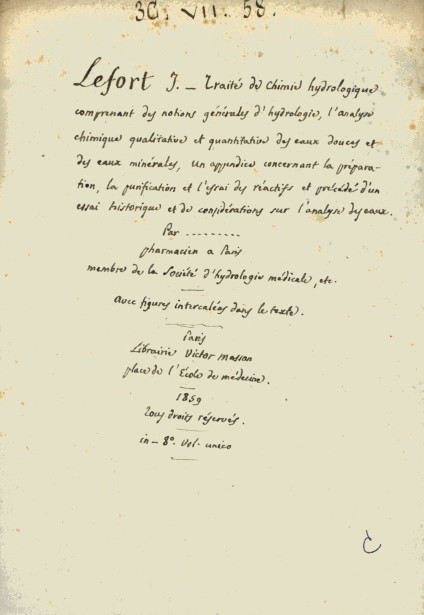 3C. VII. 58.
Lefort J. — Traité de Chimie hydrologique
comprenant des notions générales d'hydrologie, l'analyse
chimique qualitative et quantitative des eaux douces et
des eaux minérales, un appendice concernant la prépara-
tion, la purification et l'essai des réactifs et précédé d'un
essai historique et de considérations sur l'analyse des eaux.
Par ---------
pharmacien a Paris
membre de la Société d'hydrologie médicale, etc.
Avec figures intercalées dans le texte.
Paris
Librairie Victor Masson
place de l'École de médecine.
1859
Tous droits réservés.
in-8°. Vol. unico